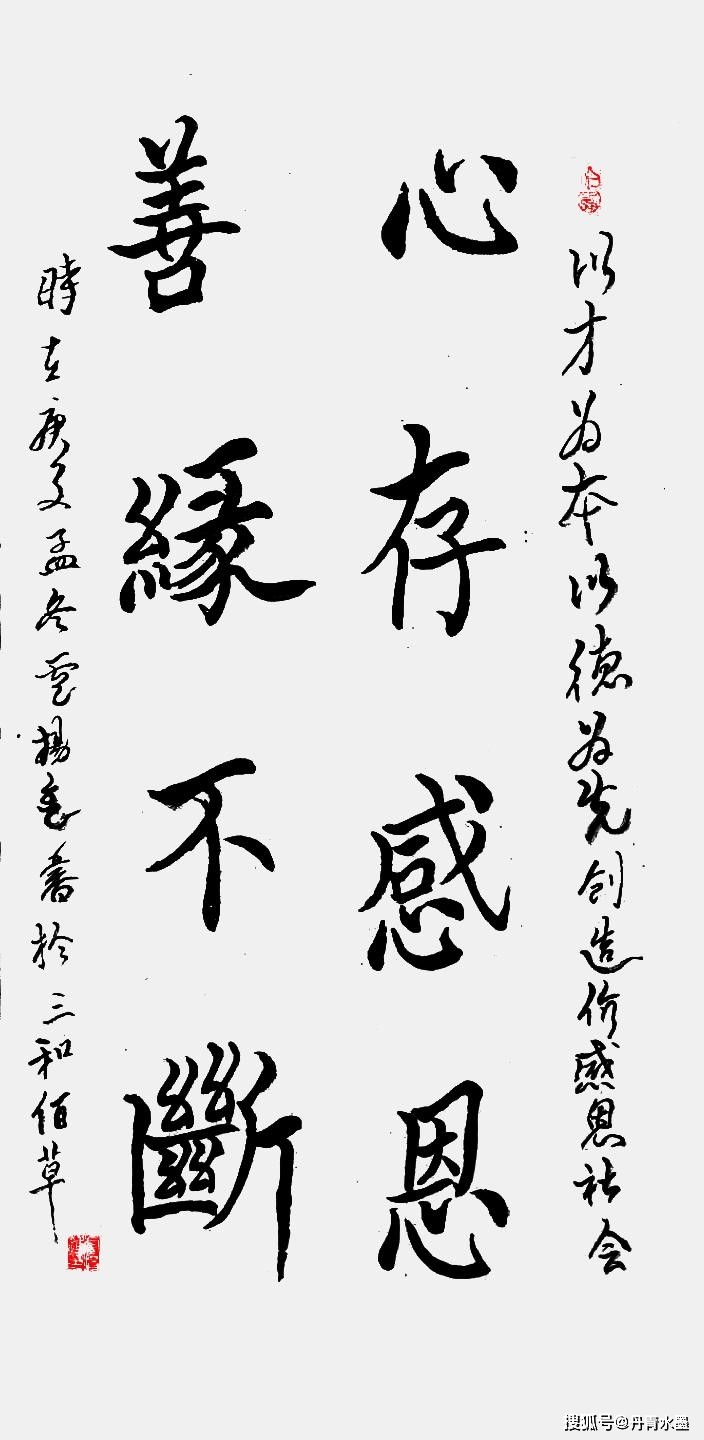 以才为本以德为先创造价感恩社会
心存感恩
善緣不斷
時在庚孟冬雲揚書於三和佰草
搜狐号@丹青水墨